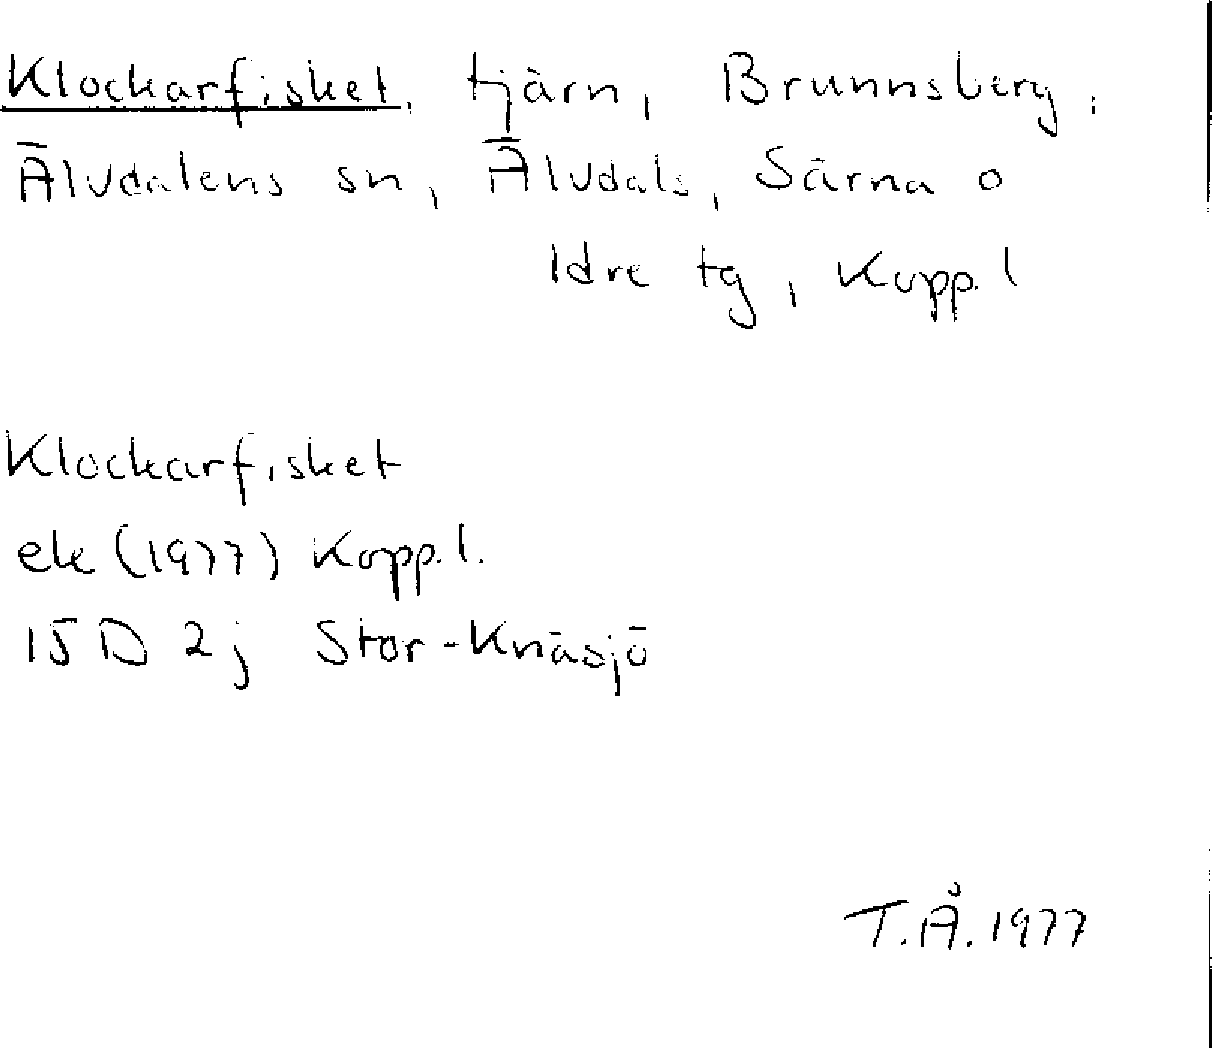 Klockarfisket, tjärn, Brunnsberg,
Älvdalens sn, Älvdals, Särna o
Idre tg, Kopp. l
Klockarfisket
ek (1977) Kopp. l.
15D 2j Stor-Knäsjö
T.Å. 1977